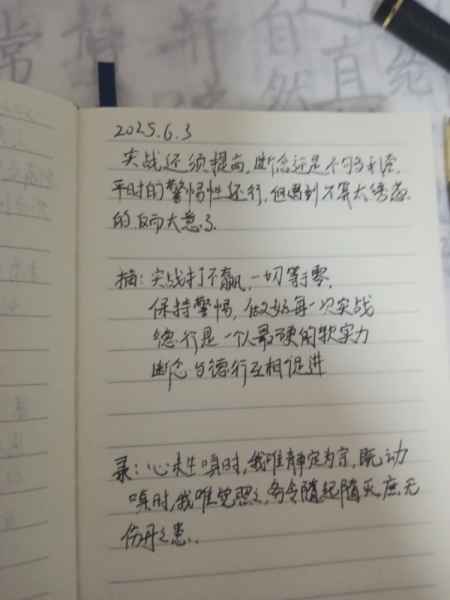 常 自 然 直
2025.6.3
实战还须提高,断念还是不够利落.
平时的警惕性还行,但遇到不算太绮
的反而大意了.
摘:实战打不赢,一切等于零.
保持警惕,做好每一次实战
德行是一个人最硬的软实力
断念与德行互相促进
录:心未生嗔时,我唯静定为宗,既动
嗔时,我唯觉照之,务令随起随灭,庶无
伤丹之患.